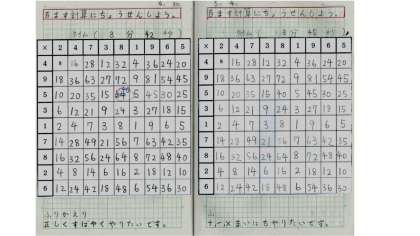 百ます計算にちょうせんしよう。
タイム( 8 分 42 秒)
× 2 4 7 3 8 1 9 6 5
4 8 16 28 12 32 4 36 24 20
9 18 36 63 27 72 9 81 54 45
5 10 20 35 15 5 45 30 25
3 6 12 21 9 24 3 27 18 15
1 2 4 7 3 8 1 9 6 5
7 14 28 49 21 56 7 63 42 35
8 16 32 56 24 64 8 72 48 40
2 4 8 14 6 16 2 18 12 10
6 12 24 42 18 48 6 54 36 30
ふりかえり
正しくすばやくやりたいです。
百ます計算にちょうせんしよう。
タイム( 8 分 45 秒)
× 2 4 7 3 8 1 9 6 5
4 8 16 28 12 32 4 36 24 20
9 18 36 63 27 72 9 81 54 45
5 10 20 35 15 40 5 45 30 25
3 6 12 21 9 24 3 27 18 15
1 2 4 7 3 8 1 9 6 5
7 14 28 49 21 56 7 63 42 35
8 16 32 56 24 64 8 72 48 40
2 4 8 14 6 16 2 18 12 10
6 12 24 42 18 48 6 54 36 30
まいにちやりたいです。